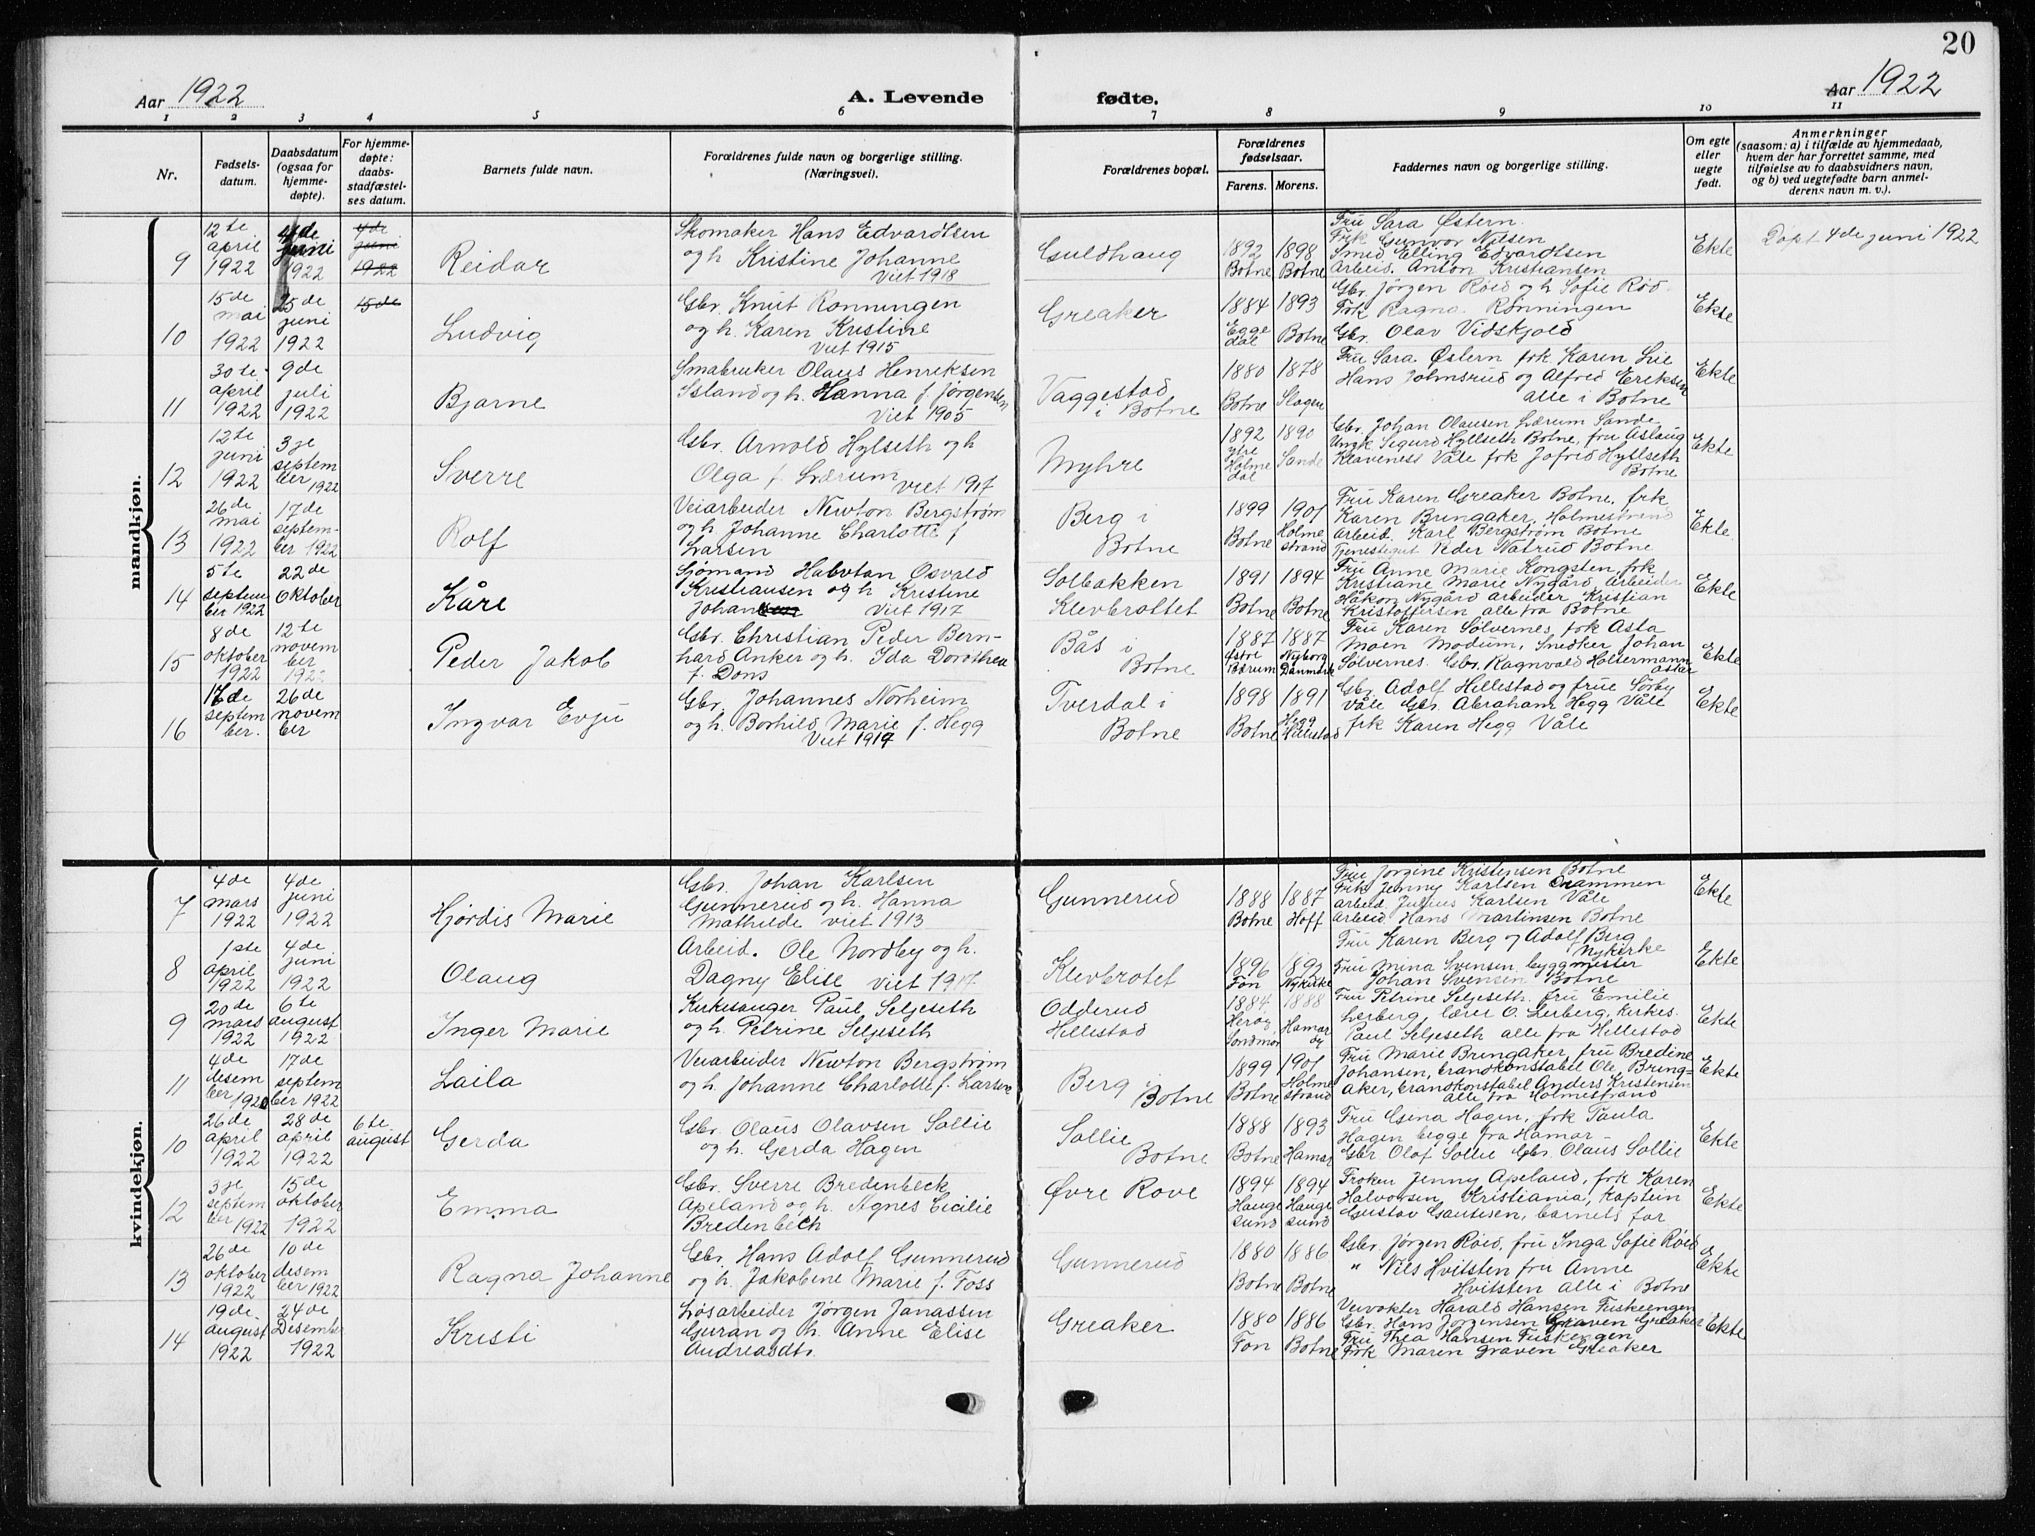 20
Aar 1922
A. Levende
fødte.
Aar 1922
1 2 3 4 5 6 7 8 9 10 11
Nr.
Fødsels-
datum.
Daabsdatum
(ogsaa for
hjemme-
døpte).
For hjemme-
døpte:
daabs-
stadfæstel-
ses datum.
Barnets fulde navn.
Forældrenes fulde navn og borgerlige stilling.
(Næringsvei).
Forældrenes bopæl.
Forældrenes
fødselsaar.
Farens. Morens.
Faddernes navn og borgerlige stilling.
Om egte
eller
uegte
født.
Anmerkninger
(saasom: a) i tilfælde av hjemmedaab,
hvem der har forrettet samme, med
tilføielse av to daabsvidners navn,
og b) ved uegtefødte barn anmel-
derens navn m. v.).
mandkjøn.
9
12te
april
1922
4de
juni
1922
4de
juni
1922
Reidar
Skomaker Hans Edvardtsen
og h. Kristine Johanne
Viet 1918
Guldhaug
1892
Botne
1898
Botne
Fru Sara Østern
Frk Gunvor Nilsen
Smed Elling Edvardtsen
Arbeid. Anton Kristiansen
Ekte
Døpt 4de juni 1922
10
15de
mai
1922
25de
juni
1922
15de
Ludvig
Gbr. Knut Ronningen
og h. Karen Kristine
Viet 1915
Greaker
1884
Egge
dal
1893
Botne
Gbr. Jörgen Röed og h Sofie Röd
Frk Ragna Rönningen
Gbr. Olav Vidskjold
Ekte
11
30te
april
1922
9de
juli
1922
Bjarne
Smabruker Olaus Henriksen
Island og h. Hanna f Jørgensen
Viet 1905
Vaggestad
i Botne
1880
Botne
1878
Slagen
Fru Sara Østern frk Karen Lie
Hans Johnsrud og Alfred Eriksen
alle i Botne
Ekte
12
12te
juni
1922
3je
septem
ber 1922
Sverre
Gbr. Arnold Hylseth og h
Olga f. Lærum viet 1917
Myhre
1892
ytre
Holme
dal
1890
Sande
Gbr. Johan Olausen Lærum Sande
Ungk Sigurd Hyllseth Botne, fru Aslaug
Klaveness Våle frk Jofrid Hyllseth
Botne
Ekte
13
26de
mai
1922
17de
septem-
ber 1922
Rolf
Veiarbeider Newton Bergström
og h. Johanne Charlotte f
Larsen
Berg i
Botne
1899
Botne
1901
Holme
strand
Fru Karen Greaker Botne, frk
Karen Bringaker, Holmestrand
Arbeid. Karl Bergström Botne
Tjenestegut Peder Natrud Botne
Ekte
14
5te
septem
ber 1922
22de
oktober
Kåre
Sjömand Halvtan Osvald
Kristiansen og h Kristine
Johan Viet 1917
Solbakken
Klevbrottet
1891
Botne
1894
Botne
Fru Anne Marie Kongsten, frk
Kristiane Marie Nygård, arbeider
Håkon Nygård arbeider Kristian
Kristoffersen alle fra Botne
Ekte
15
8de
oktober
1922
12te
novem
ber
1922
Peder Jakob
Gbr. Christian Peder Bern-
hard Anker og h. Ida Dorothea
f. Dons
Bås i
Botne
1887
østre
Bærum
1887
Nyborg
Danmark
Fru Karen Sölvernes, frk Asta
Moen Modum, Snedker Johan
Sölvernes. Gbr. Ragnvald Holtermann
Ekte
16
17de
septem
ber.
26de
novem
ber
Ingvar Evju
Gbr. Johannes Norheim
og h. Borhild Marie f. Hegg
Viet 1917
Tverdal i
Botne
1898
Botne
1891
Hegg
Hillestad
Gbr. Adolf Hillestad og frue Sörby
Våle Gbr. Abraham Hegg Våle
frk Karen Hegg Våle
Ekte
kvindekjøn.
7
4de
mars
1922
4de
juni
1922
Hjördis Marie
Gbr. Johan Karlsen
Gunnerud og h. Hanna
Mathilde viet 1913
Gunnerud
1888
Botne
1887
Hoff
Fru Jörgine Kristensen Botne
Frk Jenny Karlsen Drammen
arbeid. Julius Karlsen Våle
Arbeid Hans Martinsen Botne
Ekte
8
1ste
april
1922
4de
juni
1922
Olaug
Arbeid. Ole Nordby og h.
Dagny Elise viet 1917
Klevbrotet
1896
Fon
Nykirke
Fru Karen Berg og Adolf Berg
Nykirke
Fru Mina Svensen byggmester
Johan Svensen Botne
Ekte
9
20de
mars
1922
6te
august
1922
Inger Marie
Kirkesanger Paul Seljeseth
og h. Petrine Seljeseth
Odderud
Hillestad
1884
Heröy
Söndmör
1888
Hamar
öy
Fru Petrine Seljeseth, fru Emilie
Lerberg, lærer O. Lerberg, Kirkes.
Paul Seljeseth alle fra Hillestad
Ekte
11
4de
desem
ber 1920
17de
septem
ber 1922
Laila
Veiarbeider Newton Bergström
og h. Johanne Charlotte f. Larsen
Berg i
Botne
1899
Botne
1901
Holme
strand
Fru Marie Bringaker, fru Bredine
Johansen, brandkonstabel Ole, Bring-
aker, brandkonstabel Anders Kristensen
alle fra Holmestrand
Ekte
10
26de
april
1922
28de
april
1922
6te
august
Gerda
Gbr. Olaus Olavsen Sollie
og h. Gerda Hagen
Sollie
Botne
1888
Botne
1893
Hamar
Fru Gina Hagen, frk Paula
Hagen begge fra Hamar
Gbr Olof Sollie Gbr Olaus Sollie
Ekte
12
3je
septem
ber 1922
15de
oktober
1922
Emma
Gbr. Sverre Bredenbeck
Apeland og h. Agnes Cicilie
Bredenbech
Øvre Rove
1894
Hauge
sund
1894
Hauge
sund
Froken Jenny Apeland, frk Karen
Halvorsen, Kristiania, Kaptein
Gustav Gautesen, barnets far
Ekte
13
26de
oktober
1922
10de
desem
ber 1922
Ragna Johanne
Gbr. Hans Adolf Gunnerud
og h. Jakobine Marie f. Foss
Gunnerud
1880
Botne
1886
Botne
Gbr. Jörgen Röed, fru Inga Sofie Röed
" Nils Hvitsten fru Anne
Hvitsten alle i Botne
Ekte
14
19de
august
1922
24de
Desember
1922
Kristi
Løsarbeider Jørgen Janassen
Guran og h. Anne Elise
Andreasdtr.
Greaker
1880
Fon
1886
Botne
Veivokter Harald Hansen Fuskeengen
Gbr. Hans Jorgensen Graven Greaker
Fru Thea Hansen Fuskengen
Frk Maren Graven Greaker
Ekte